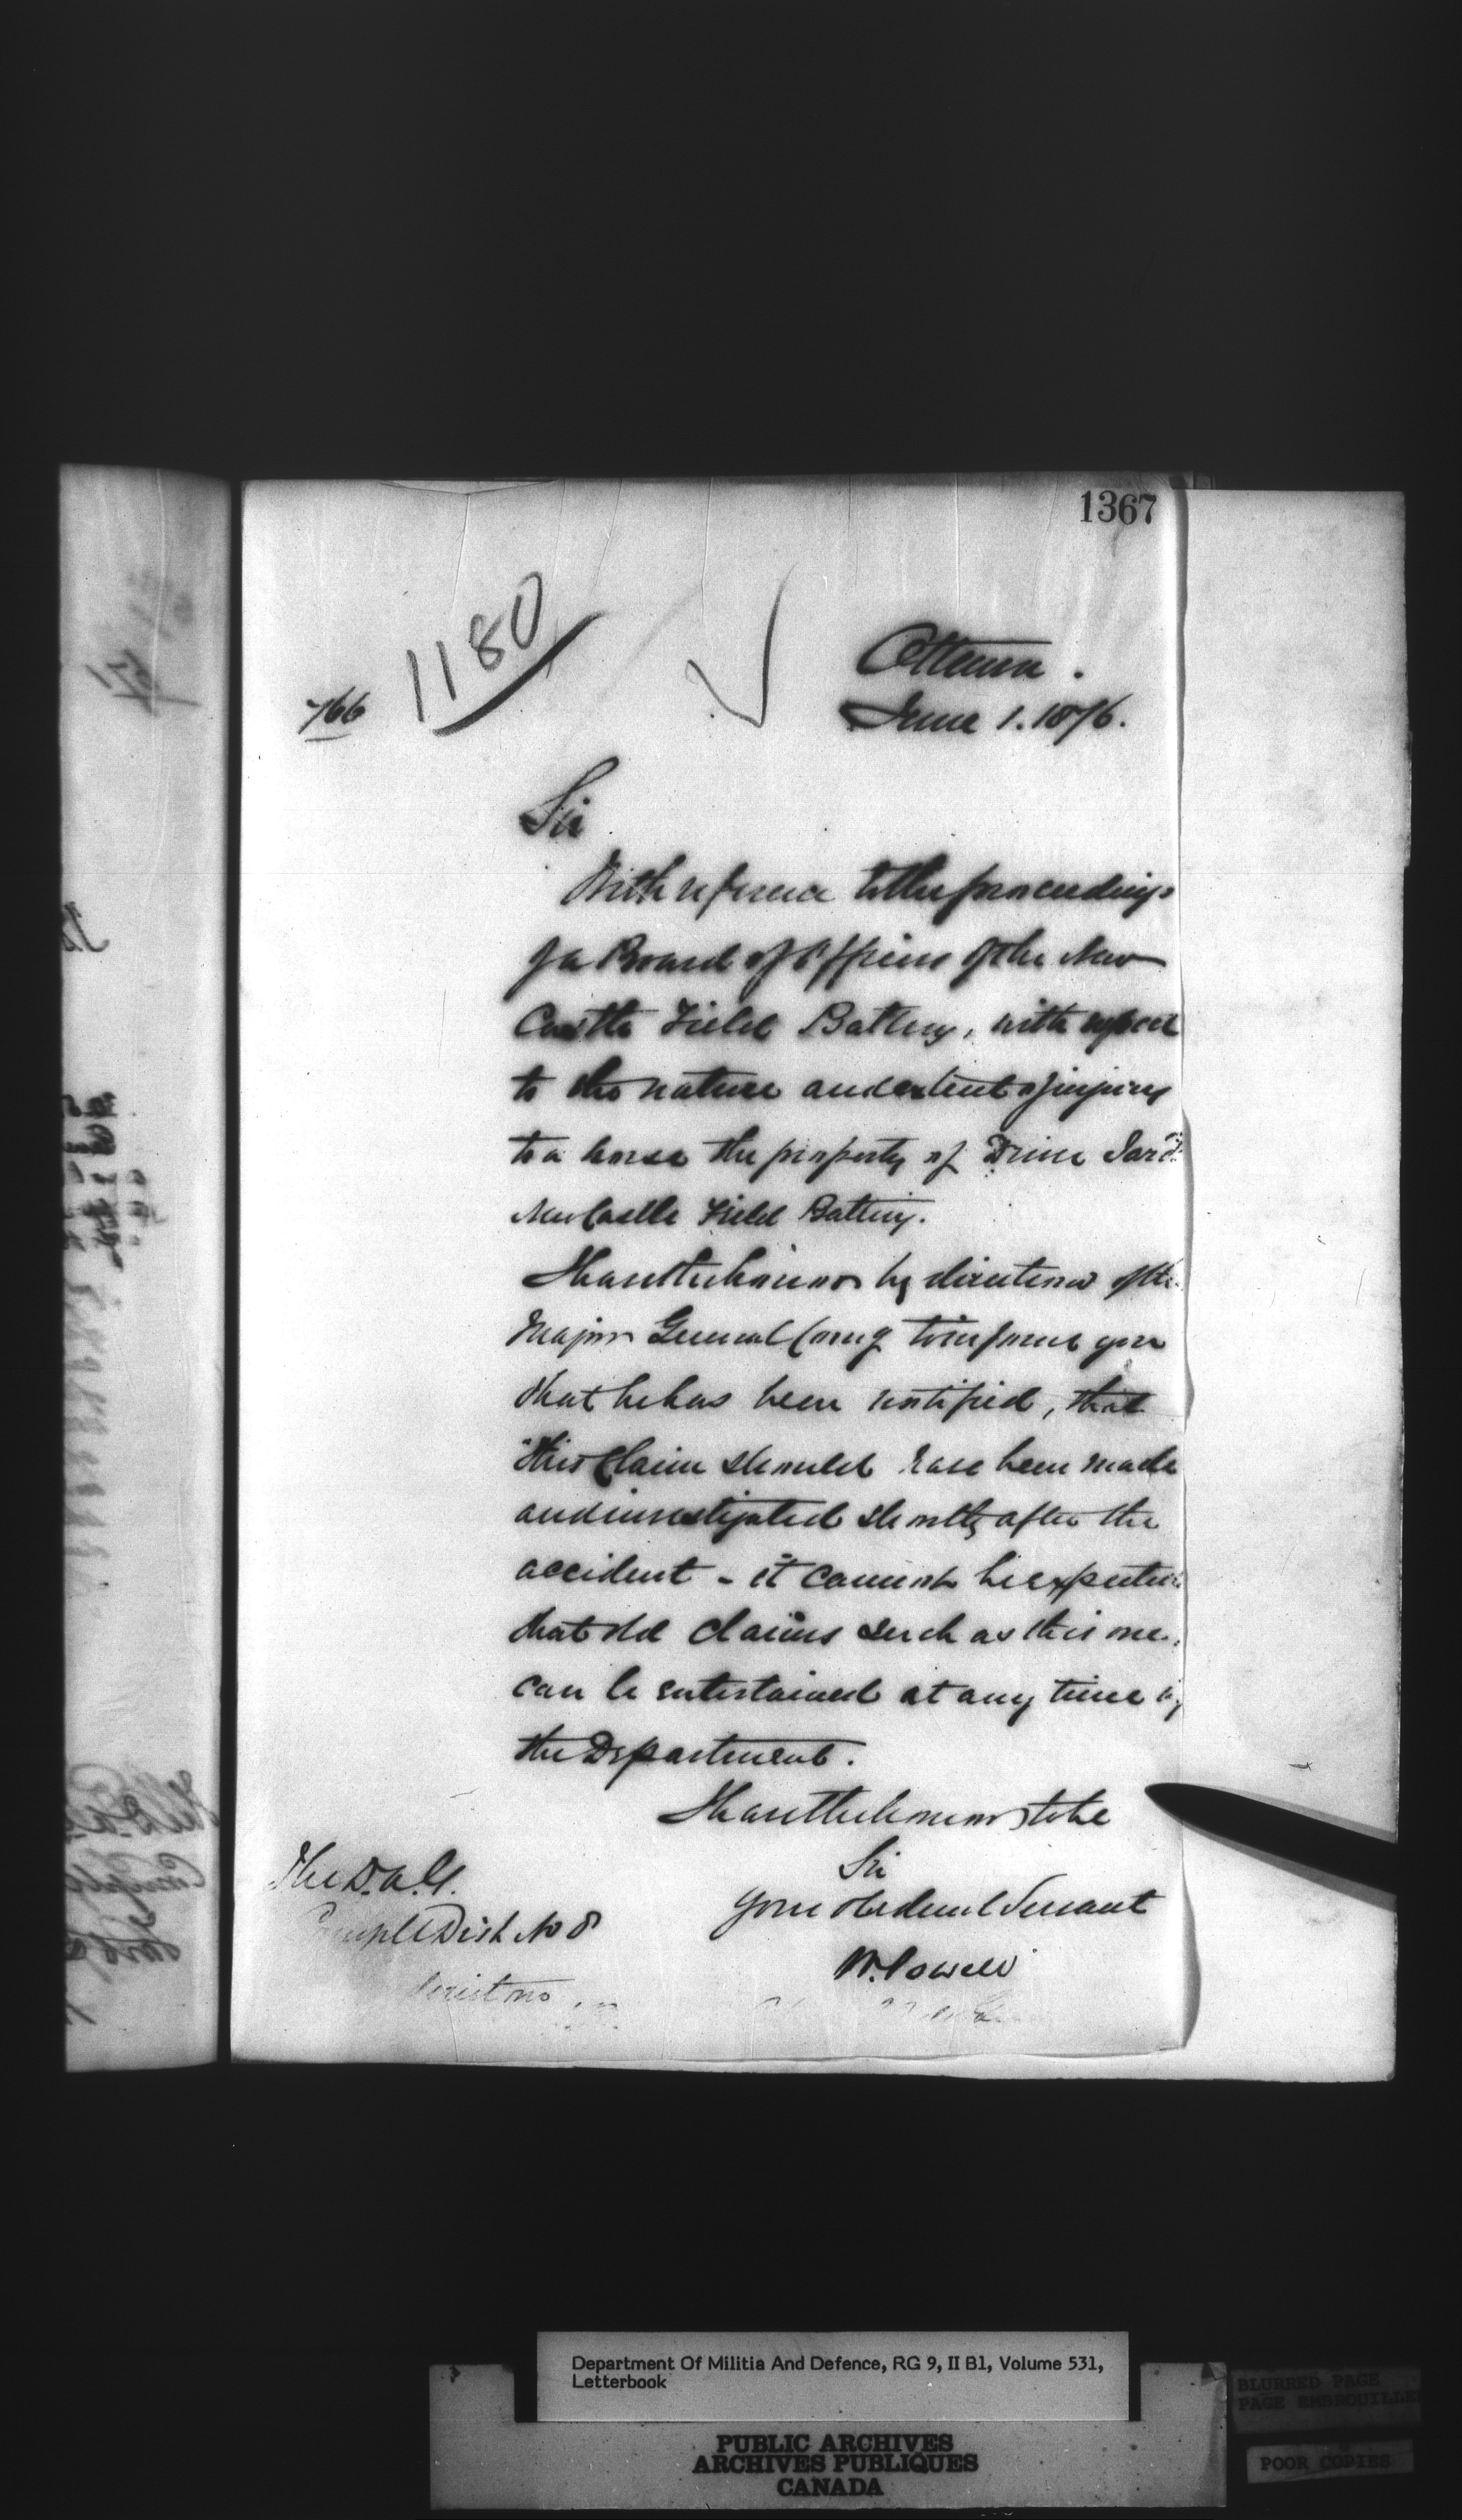 1367
1180
766
Ottawa.
June 1. 1876.
Sir
With reference to the proceedings
of a Board of Officers of the New
Castle Field Battery, with respect
to the nature and extent of injury
to a horse the property of
Newcastle Field Battery.
I have the honour by direction of the
Major General Comg to inform you
that he has been notified, that
this Claim should have been made
and investigated shortly after the
accident - it cannot be expected
that old claims such as this one,
can be entertained at any time by
the Department.
I have the honour to be
Sir
Your obedient Servant
W. Powell
The D.A.G.
Dist No 8
Department Of Militia And Defence, RG 9, II B1, Volume 531,
Letterbook
PUBLIC ARCHIVES
ARCHIVES PUBLIQUES
CANADA
BLURRED PAGE
PAGE EMBROUILLEE
POOR COPIES